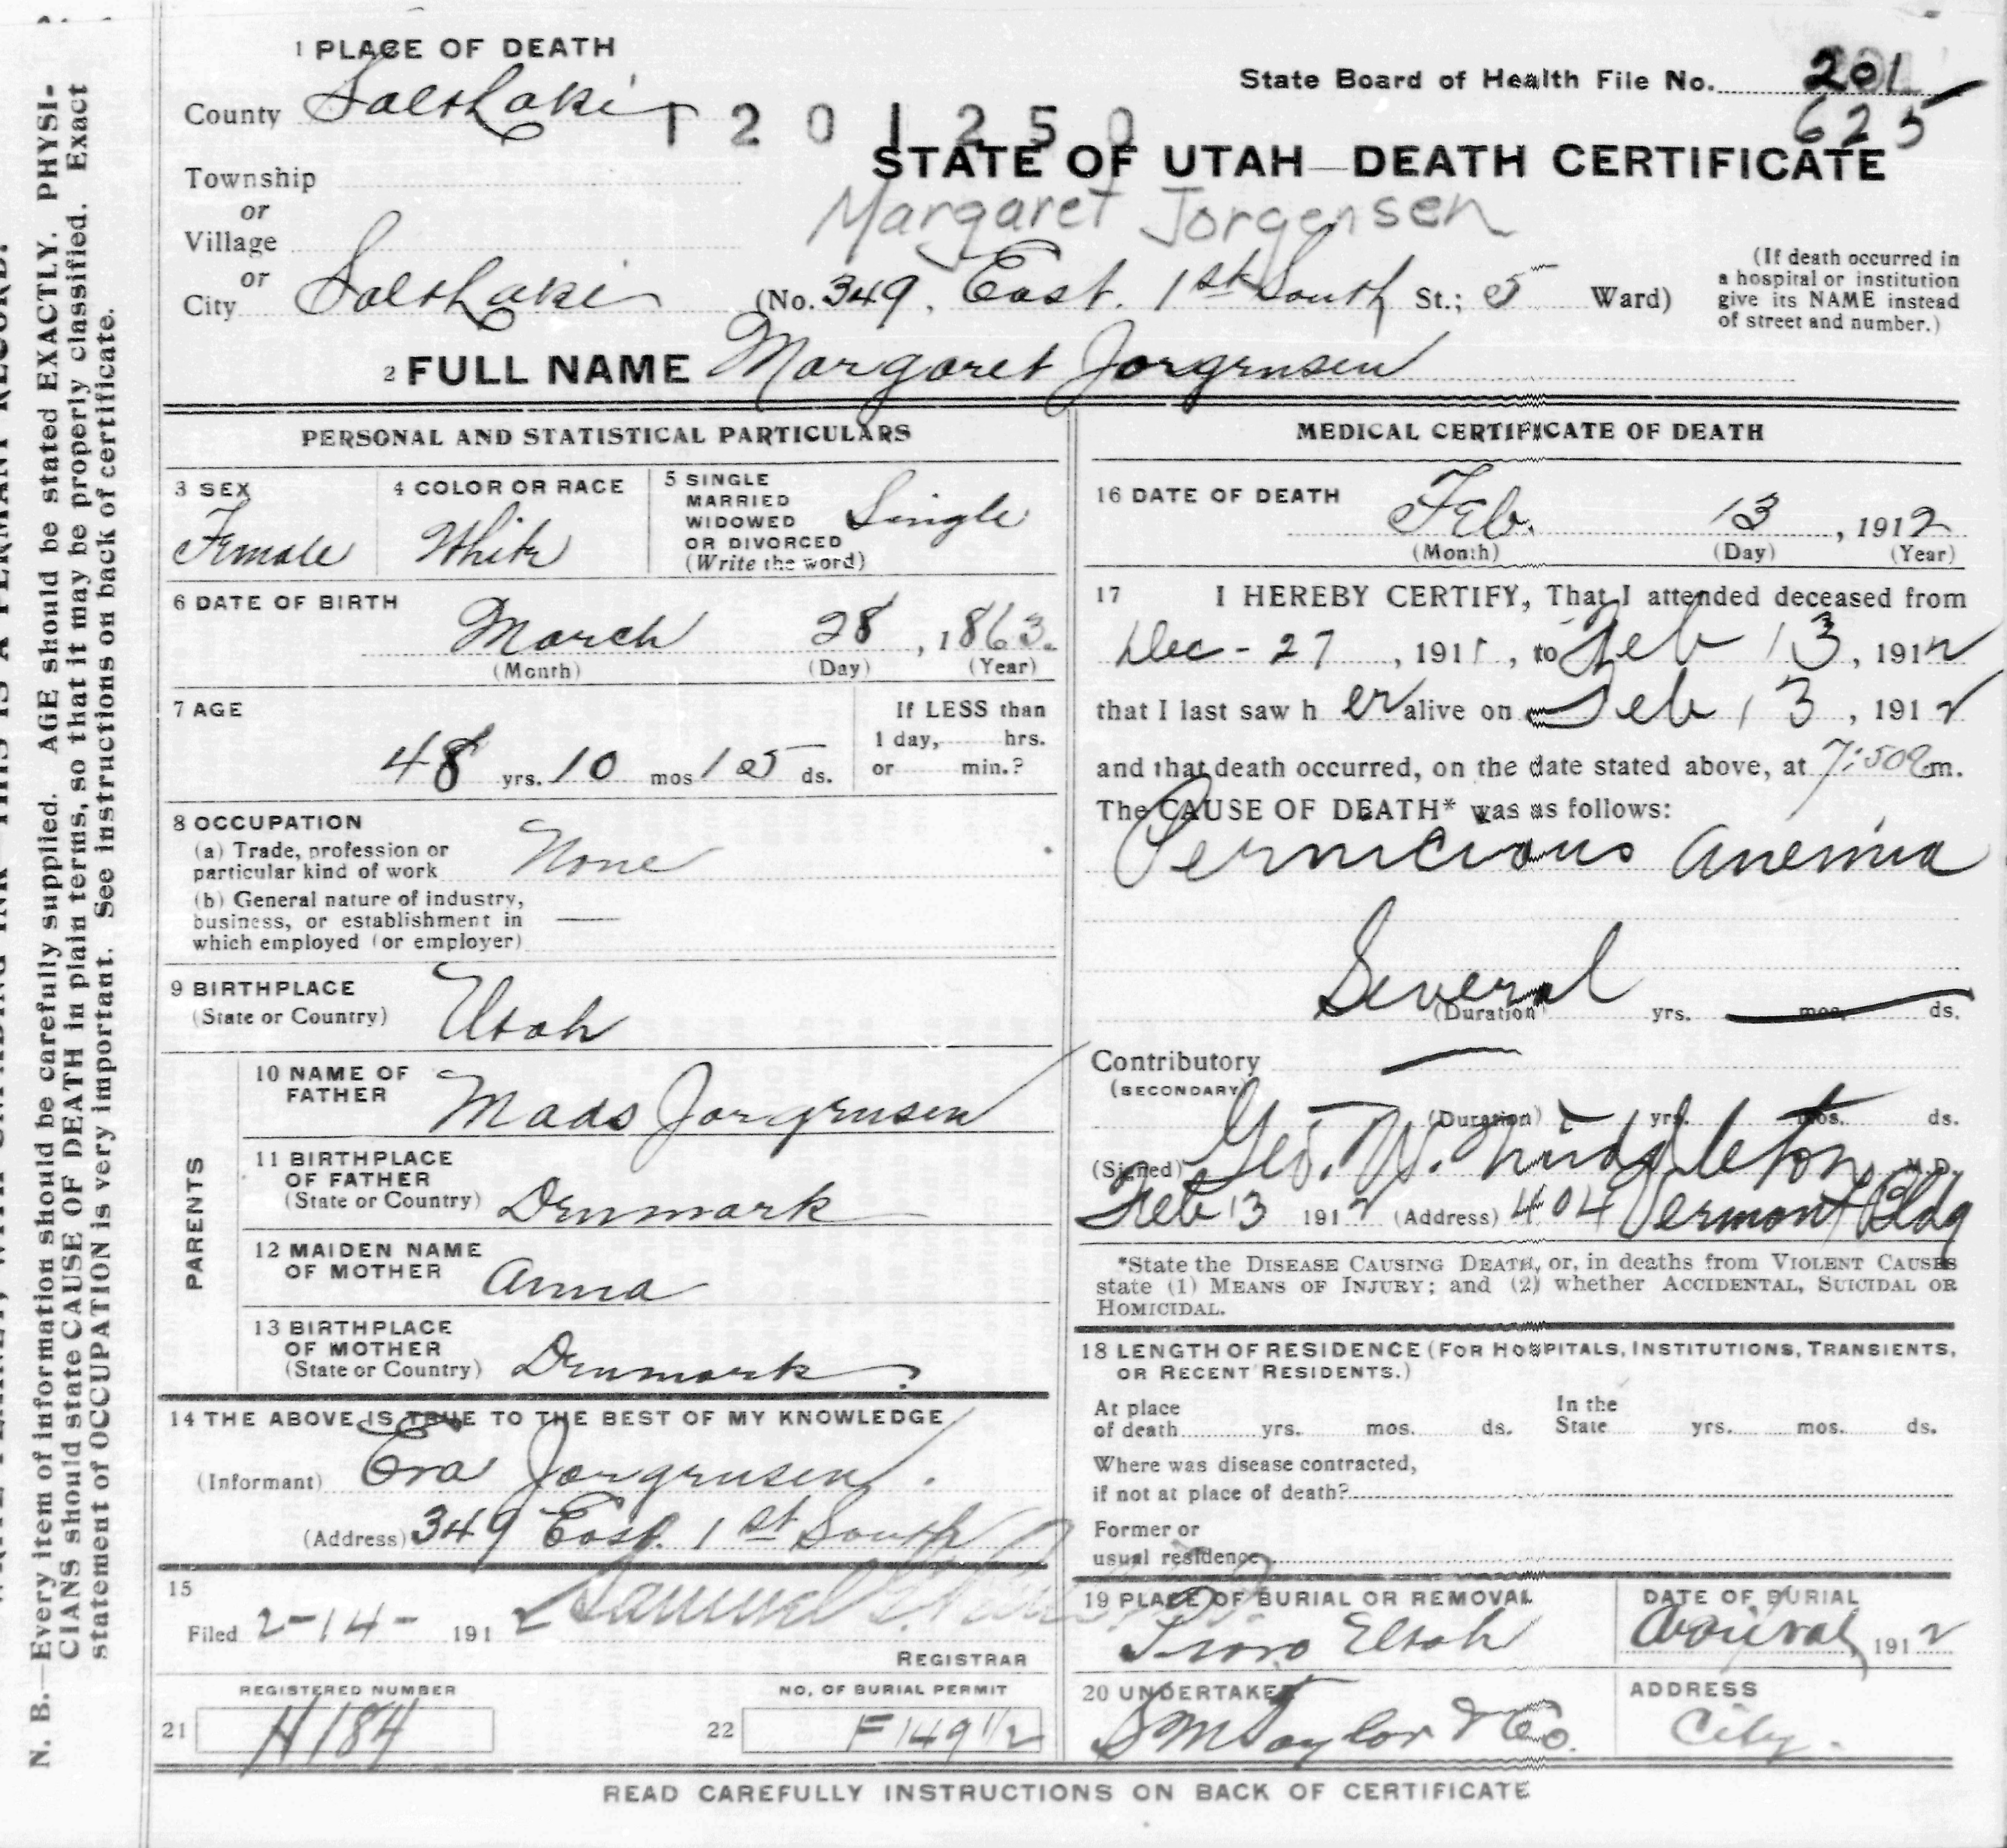 1 PLACE OF DEATH
State Board of Health File No. 201
County Salt Lake 1 2 0 1 2 5 0 625
STATE OF UTAH—DEATH CERTIFICATE
Township
Margaret Jorgensen
or
Village
or
City Salt Lake (No. 349, East. 1st South St.; 5 Ward)
(If death occurred in
a hospital or institution
give its NAME instead
of street and number.)
2 FULL NAME Margaret Jorgensen
PERSONAL AND STATISTICAL PARTICULARS
3 SEX
Female
4 COLOR OR RACE
White
5 SINGLE
MARRIED
WIDOWED
OR DIVORCED
(Write the word)
Single
6 DATE OF BIRTH
March 28, 1863.
(Month) (Day) (Year)
7 AGE
48 yrs. 10 mos 15 ds.
If LESS than
1 day,...... hrs.
or ...... min.?
8 OCCUPATION
(a) Trade, profession or
particular kind of work None
(b) General nature of industry,
business, or establishment in —
which employed (or employer)
9 BIRTHPLACE
(State or Country) Utah
PARENTS
10 NAME OF
FATHER Mads Jorgensen
11 BIRTHPLACE
OF FATHER
(State or Country) Denmark
12 MAIDEN NAME
OF MOTHER Anna
13 BIRTHPLACE
OF MOTHER
(State or Country) Denmark.
14 THE ABOVE IS TRUE TO THE BEST OF MY KNOWLEDGE
(Informant) Jorgensen.
(Address) 349 East. 1st South
15
Filed 2-14- 1912 Samuel
REGISTRAR
REGISTERED NUMBER
21 H184
NO. OF BURIAL PERMIT
22 F149 1/2
MEDICAL CERTIFICATE OF DEATH
16 DATE OF DEATH
Feb. 13, 1912
(Month) (Day) (Year)
17 I HEREBY CERTIFY, That I attended deceased from
Dec - 27, 1911, to Feb 13, 1912
that I last saw her alive on Feb 13, 1912
and that death occurred, on the date stated above, at 7:50 m.
The CAUSE OF DEATH* was as follows:
Pernicious Anemia
Several
(Duration) yrs. mos. ds.
Contributory —
(SECONDARY)
(Duration) yrs. mos. ds.
(Signed) Geo. W. Middleton, M.D.
Feb 13 1912 (Address) 404 Vermont Bldg
*State the DISEASE CAUSING DEATH, or, in deaths from VIOLENT CAUSES
state (1) MEANS OF INJURY; and (2) whether ACCIDENTAL, SUICIDAL OR
HOMICIDAL.
18 LENGTH OF RESIDENCE (FOR HOSPITALS, INSTITUTIONS, TRANSIENTS,
OR RECENT RESIDENTS.)
At place
of death........yrs. mos. ds.
In the
State yrs. mos. ds.
Where was disease contracted,
if not at place of death?
Former or
usual residence
19 PLACE OF BURIAL OR REMOVAL
Provo Utah
DATE OF BURIAL
Arrival, 1912
20 UNDERTAKER
S M Taylor & Co.
ADDRESS
City.
READ CAREFULLY INSTRUCTIONS ON BACK OF CERTIFICATE
N. B.—Every item of information should be carefully supplied. AGE should be stated EXACTLY. PHYSI-
CIANS should state CAUSE OF DEATH in plain terms, so that it may be properly classified. Exact
statement of OCCUPATION is very important. See instructions on back of certificate.